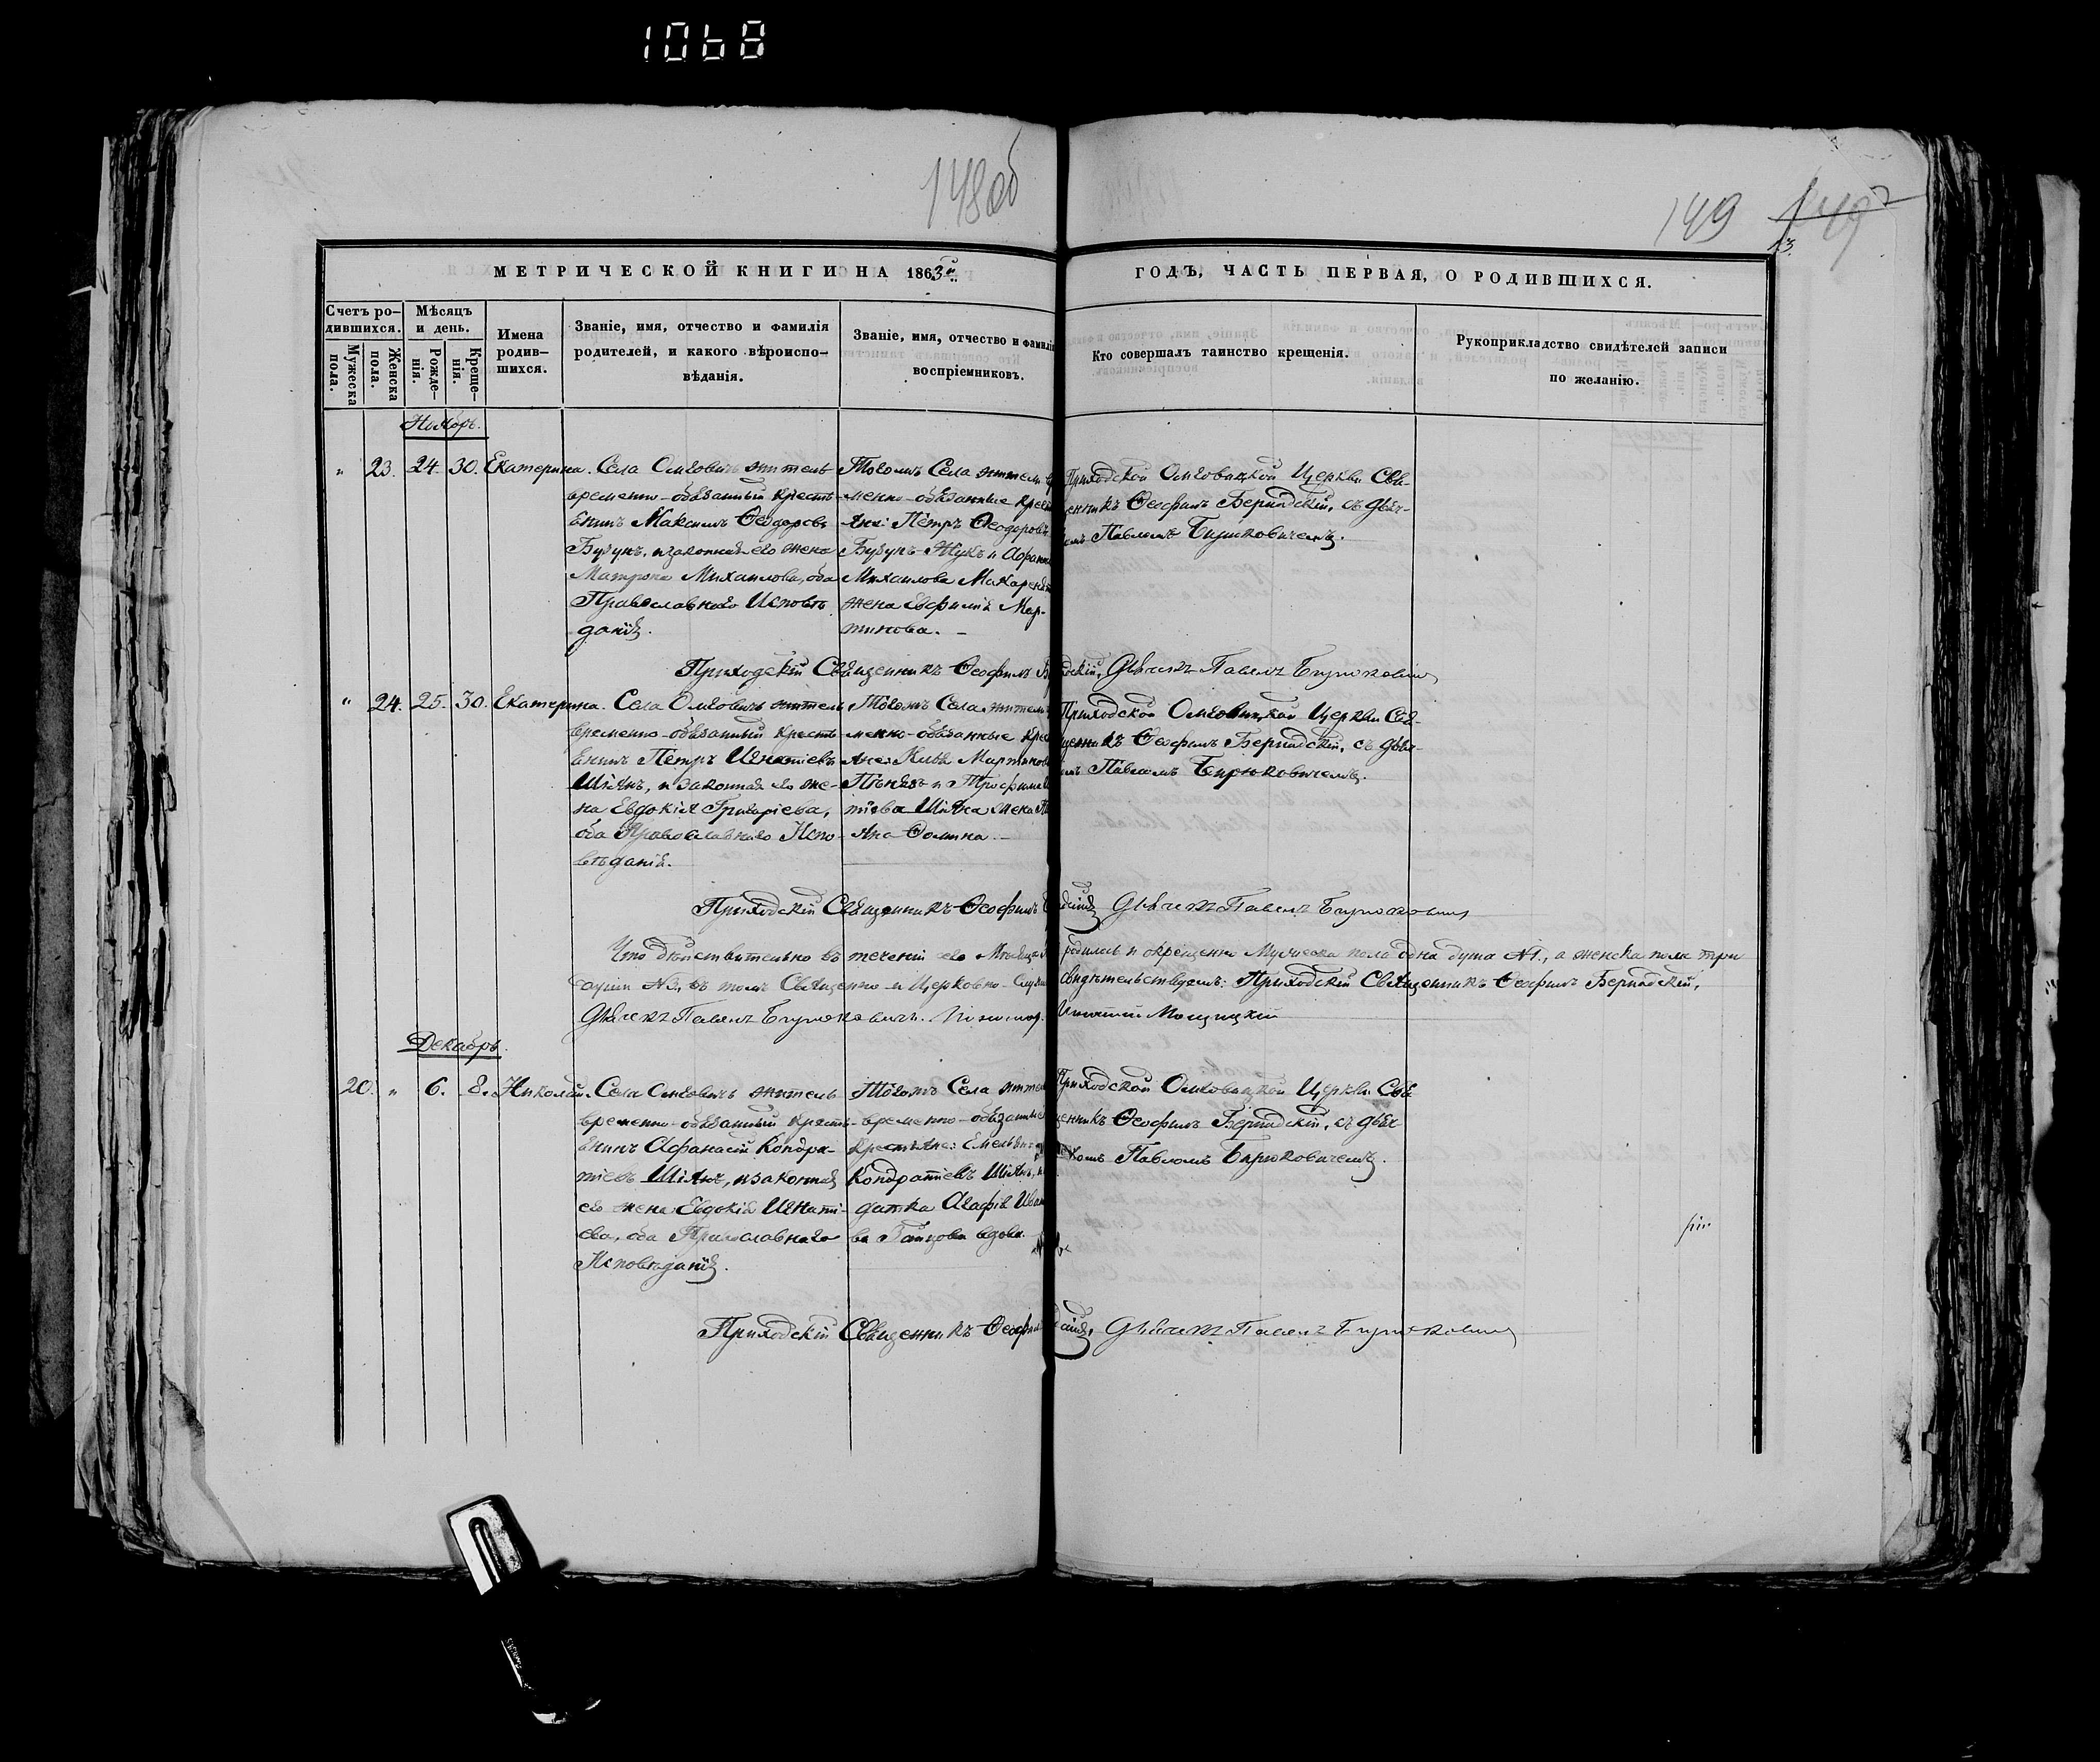 1068
148об
149 149
13.
МЕТРИЧЕСКОЙ КНИГИ НА 1863й
ГОДЪ, ЧАСТЬ ПЕРВАЯ, О РОДИВШИХСЯ.
Счетъ ро-
дившихся.
Мужеска
пола.
Женска
пола.
Мѣсяцъ
и день.
Рожде-
нія.
Креще-
нія.
Имена
родив-
шихся.
Званіе, имя, отчество и фамилія
родителей, и какого вѣроиспо-
вѣданія.
Званіе, имя, отчество и фамилі
воспріемниковъ.
Кто совершалъ таинство крещенія.
Рукоприкладство свидѣтелей записи
по желанію.
Ноябрь.
" 23. 24. 30. Екатерина.
Села житель
временно-обязанный кресть-
янинъ Максимъ Ѳеодоровъ
Бузунъ, и законная его жена
Матрона Михаилова, оба
Православнаго Исповѣ-
данія.
Тогожъ Села жители
менно-обязанные крес
яне: Пётръ Ѳеодоровъ
Бузунъ-Жукъ и
Михаилова
жена Евфимія Мар-
тинова.
Приходской Церкви Свя-
щенникъ Ѳеофилъ Бернадскій, съ дья-
Павломъ Бирюковичемъ.
Приходскій Священникъ Ѳеофилъ Бе
дскій, Дьячекъ Павелъ Бирюковичъ
" 24. 25. 30. Екатерина.
Села житель
временно-обязанный кресть-
янинъ Пётръ Игнатіевъ
Шіянъ, и законная его же-
на Евдокія Григоріева,
оба Православнаго Испо-
вѣданія.
Тогожъ Села жители
менно-обязанные крес
яне: Мартинов
и Трофима
тіева Шіяна жена
Ѳомина.
Приходской Церкви Свя-
щенникъ Ѳеофилъ Бернадскій, съ дья-
Павломъ Бирюковичемъ.
Приходскій Священникъ Ѳеофилъ
дскій, Дьячекъ Павелъ Бирюковичъ
Что дѣйствительно въ теченіи сего Мѣсяца
родилось и окрещенно Мужеска пола одна душа №1., а женска пола три
души №3, въ томъ Священно и Церковно-Служ
свидѣтельствуемъ: Приходскій Священникъ Ѳеофилъ Бернадскій,
Дьячекъ Павелъ Бирюковичъ. Пономар.
Игнатій
Декабрь.
20. " 6. 8. Николай.
Села житель
временно-обязанный кресть-
янинъ Афанасій Кондра-
тіевъ Шіянъ, и законная
его жена Евдокія Игнаті-
ева, оба Православнаго
Исповѣданія.
Тогожъ Села жител
временно-обязанные
крестьяне: Емельянъ
Кондратіевъ Шіянъ, и
Агафія Ивано
ва вдова.
Приходской Церкви Свя
щенникъ Ѳеофилъ Бернадскій, съ дья
чкомъ Павломъ Бирюковичемъ.
Приходскій Священникъ Ѳеофи
дскій, Дьячекъ Павелъ Бирюковичъ